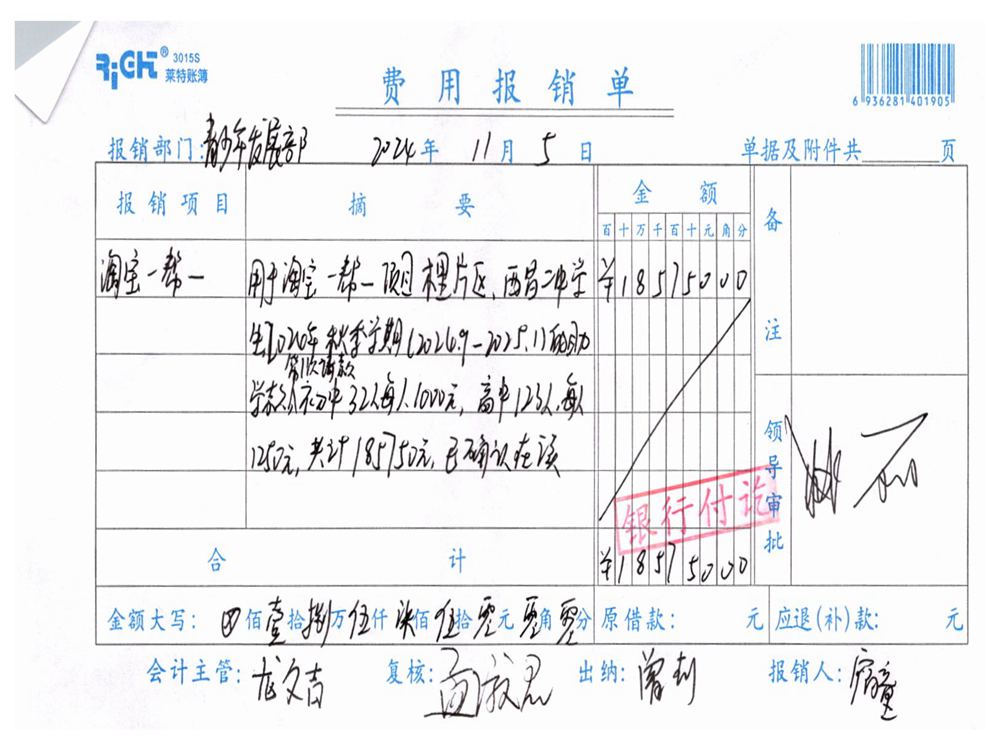 RiGHT® 3015S
莱特账簿
费用报销单
6 936281 401905
报销部门:青少年发展部 2024年 11月 5日 单据及附件共 页
报销项目 摘要 金额 备注
百十万千百十元角分
淘宝一帮一 用于淘宝一帮一项目 片区、西昌二中学 ¥18575000
生2024年秋季学期(2024.9-2025.1)的助
第1次请款
学款,初中32人每人1000元,高中123人,每人
1250元,共计185750元,已确认在读
领导审批
银行付讫
合计 ¥18575000
金额大写: 佰壹拾捌万伍仟柒佰伍拾零元零角零分 原借款: 元 应退(补)款: 元
会计主管:龙文吉 复核: 出纳:曾利 报销人: